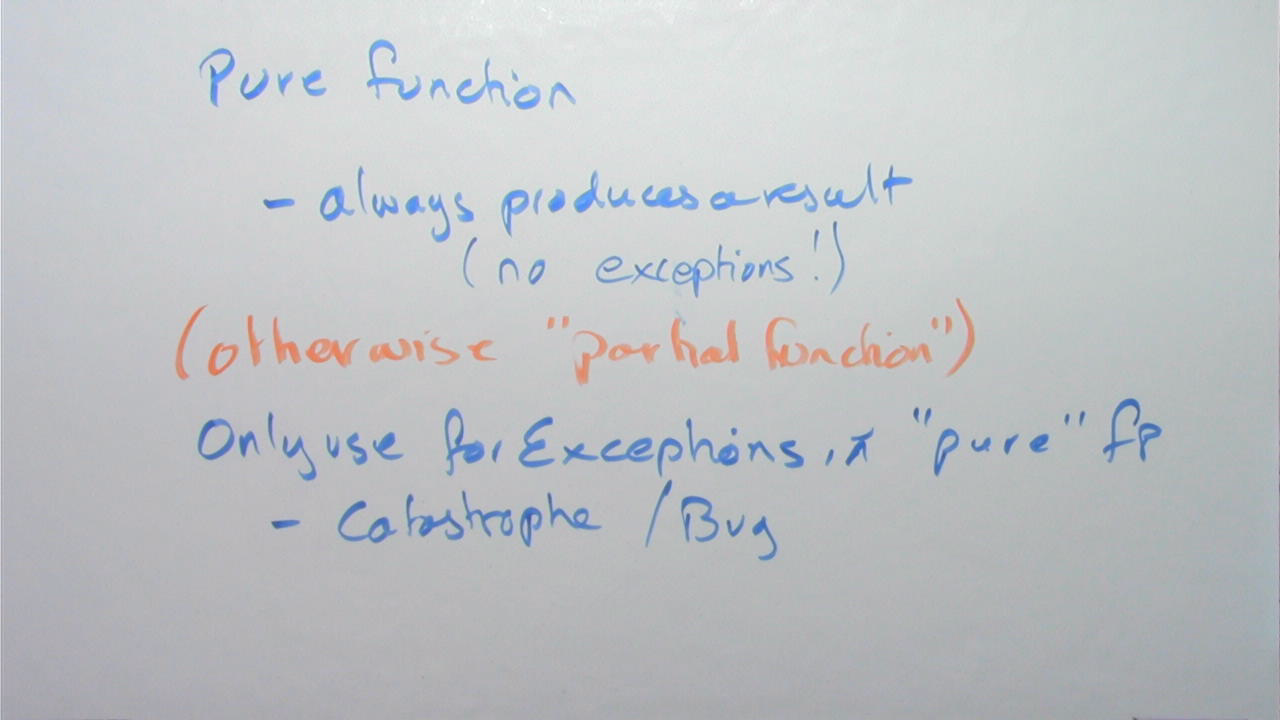 Pure function
- always produces a result
(no exceptions!)
(otherwise "partial function")
Only use for Exceptions, "pure" fp
- Catastrophe / Bug